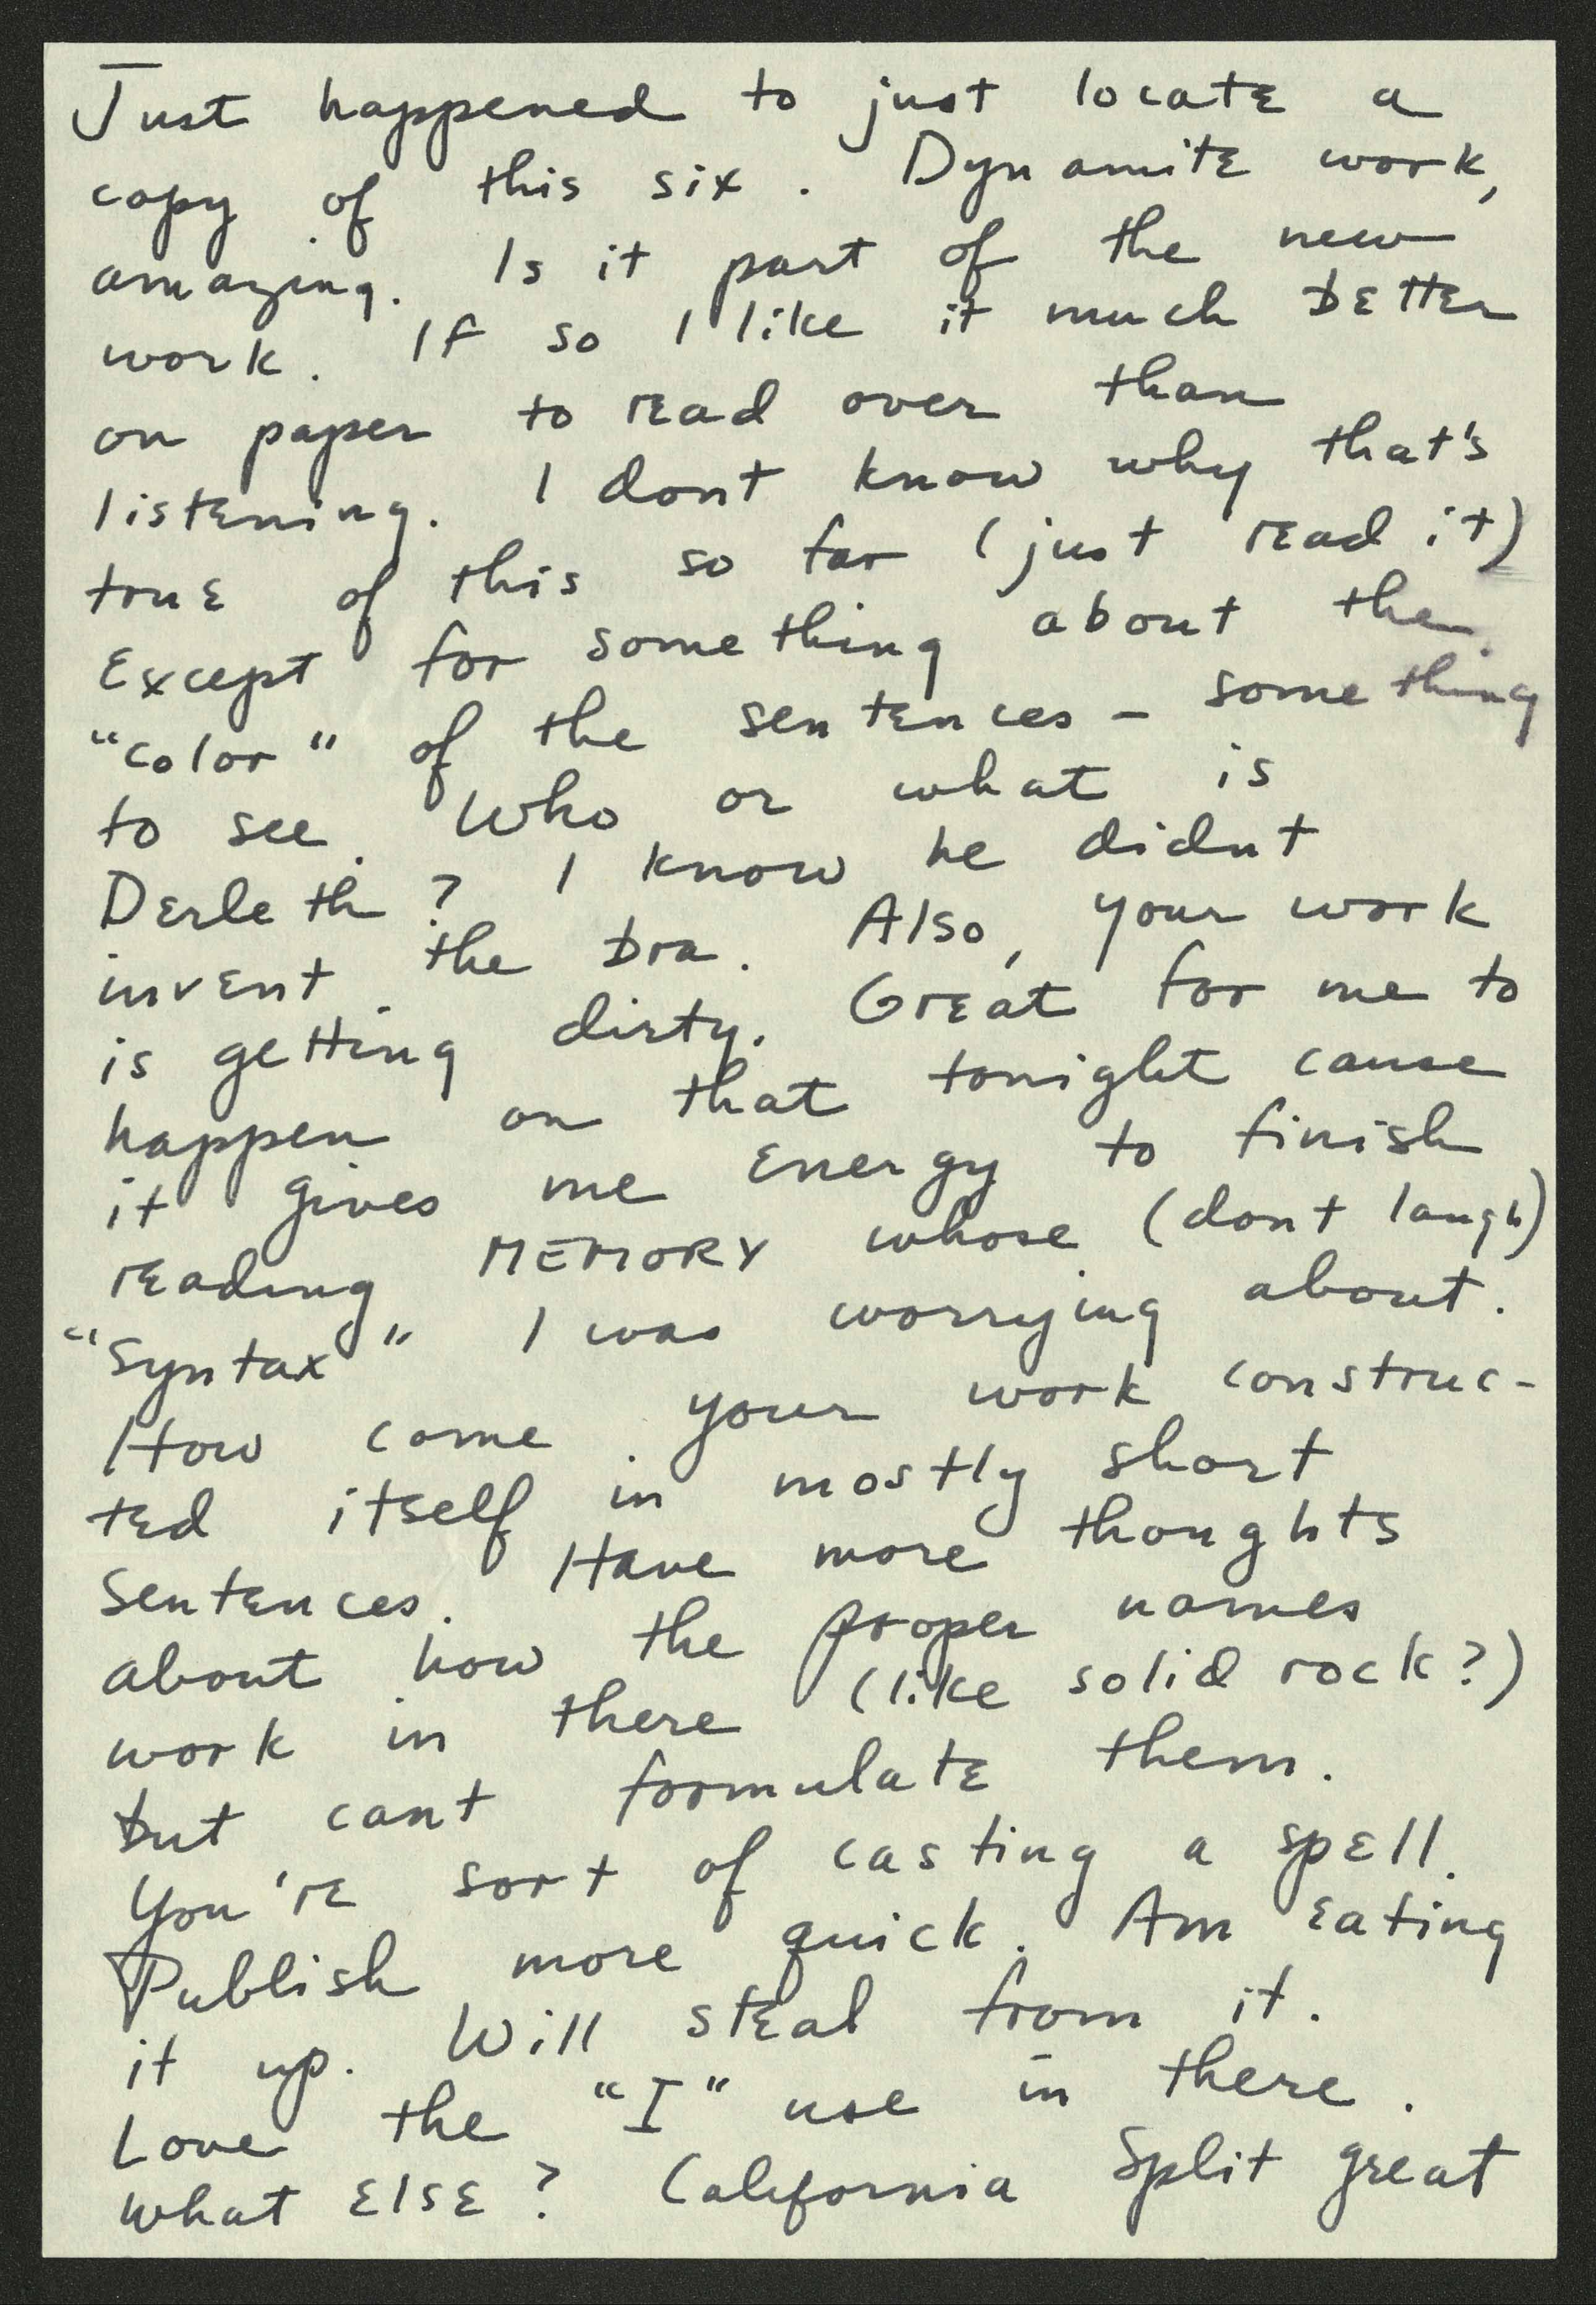 Just happened to just locate a
copy of this six. Dynamite work,
amazing. Is it part of the new
work. If so I like it much better
on paper to read over than
listening. I dont know why that's
true of this so far (just read it)
Except for something about the
"color" of the sentences - something
to see. Who or what is
Derleth? I know he didnt
invent the bra. Also, your work
is getting dirty. Great for me to
happen on that tonight cause
it gives me energy to finish
reading MEMORY whose (dont laugh)
"Syntax" I was worrying about.
How come your work construc-
ted itself in mostly short
sentences. Have more thoughts
about how the proper names
work in there (like solid rock?)
but cant formulate them.
You're sort of casting a spell.
Publish more quick. Am eating
it up. Will steal from it.
Love the "I" use in there.
What else? California Split great